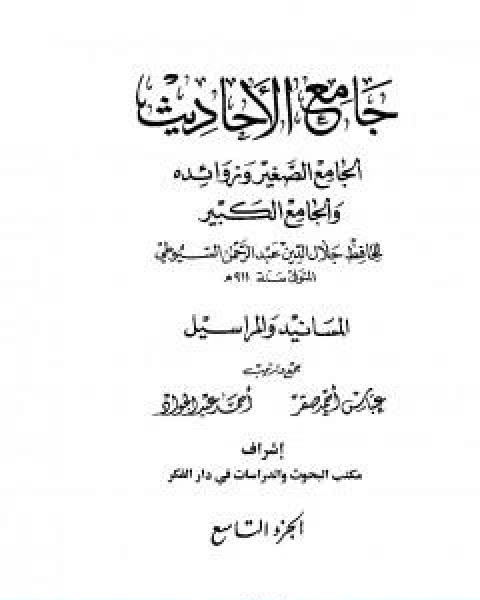 جامع الأحاديث
الجامع الصغير وزوائده
والجامع الكبير
للحافظ جلال الدين عبد الرحمن السيوطي
المتوفى سنة ٩١١ هـ
المسانيد والمراسيل
جمع وترتيب
عباس أحمد صقر أحمد عبد الجواد
إشراف
مكتب البحوث والدراسات في دار الفكر
الجزء التاسع